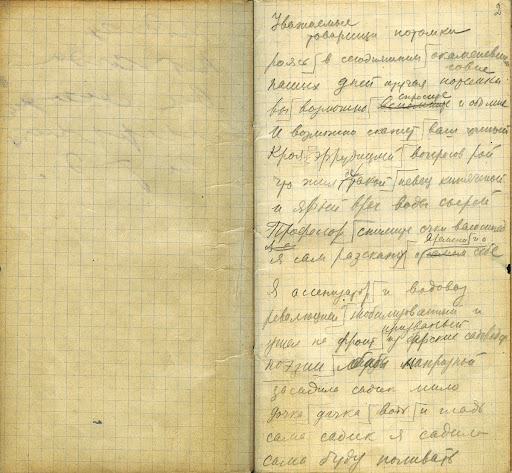 2
Уважаемые
товарищи потомки
роясь в сегодняшнем окаменевшем
говне
наших дней изучая потемки
вы возможно спросите и обо мне
И возможно скажет ваш ученый
Кроя эррудицией вопросов рой
что жил де такой певец кипяченой
и ярый враг воды сырой
Профессор снимите очки велосипед
я сам расскажу о времени и о себе
Я ассенизатор и водовоз
революцией мобилизованный и
призванный
ушел на фронт из барских садоводств
поэзии бабы капризной
засадила садик мило
дочка дачка водь и гладь
сама садик я садила
сама буду поливать